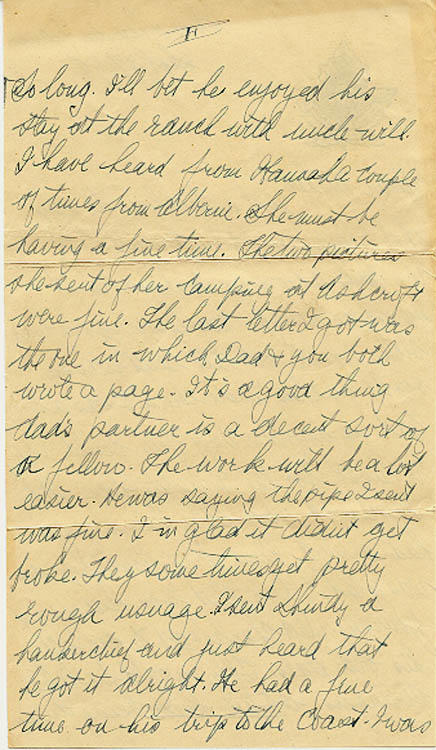 II
So long. I'll bet he enjoyed his
stay at the ranch with uncle will.
I have heard from Hannah a couple
of times from Alberni. She must be
having a fine time. The two pictures
she sent of her camping at Ashcroft
were fine. The last letter I got was
the one in which Dad & you both
wrote a page. It's a good thing
dad's partner is a decent sort of
a fellow. The work will be a lot
easier. He was saying the pipe I sent
was fine. I'm glad it didn't get
broke. They sometimes get pretty
rough usuage. I sent a
hankerchief and just heard that
he got it alright. He had a fine
time on his trip to the Coast. I was